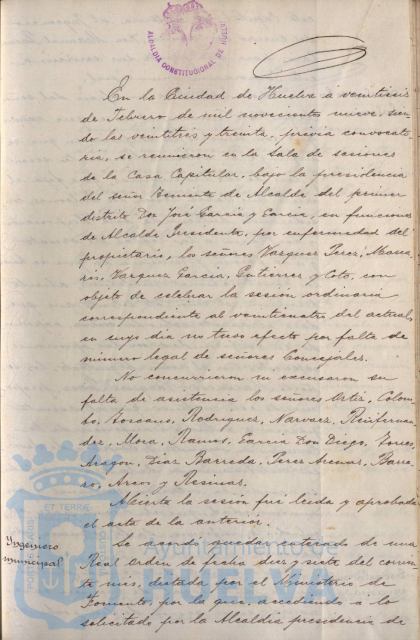 ALCALDIA CONSTITUCIONAL DE HUELVA
En la Ciudad de Huelva á veintiseis
de Febrero de mil novecientos nueve, sien-
do las veintitres y treinta, prévia convocato-
ria, se reunieron en la Sala de sesiones
de la Casa Capitular, bajo la presidencia
del señor Teniente de Alcalde del primer
distrito Don José Garcia y Garcia, en funciones
de Alcalde Presidente, por enfermedad del
propietario, los señores Vazquez Perez, Maca-
rio, Vazquez Garcia, Gutierrez y Coto, con
objeto de celebrar la sesión ordinaria
correspondiente al veinticuatro del actual,
en cuyo dia no tuvo efecto por falta de
número legal de señores Concejales.
No concurrieron ni excusaron su
falta de asistencia los señores Ortiz, Colom-
bo, Toscano, Rodriguez, Narvaez,
dez, Mora, Ramos, Garcia Don Diego, Torres,
Aragon, Diaz Barreda, Perez Arenas, Barro-
so, y
Abierta la sesión fué leida y aprobada
el acta de la anterior.
Yngeniero
municipal
Se acordó quedar enterado de una
Real Orden de fecha diez y siete del corrien-
te mes, dictada por el Ministerio de
Fomento, por la que, accediendo a lo
solicitado por la Alcaldia presidencia de
Ayuntamiento de
HUELVA